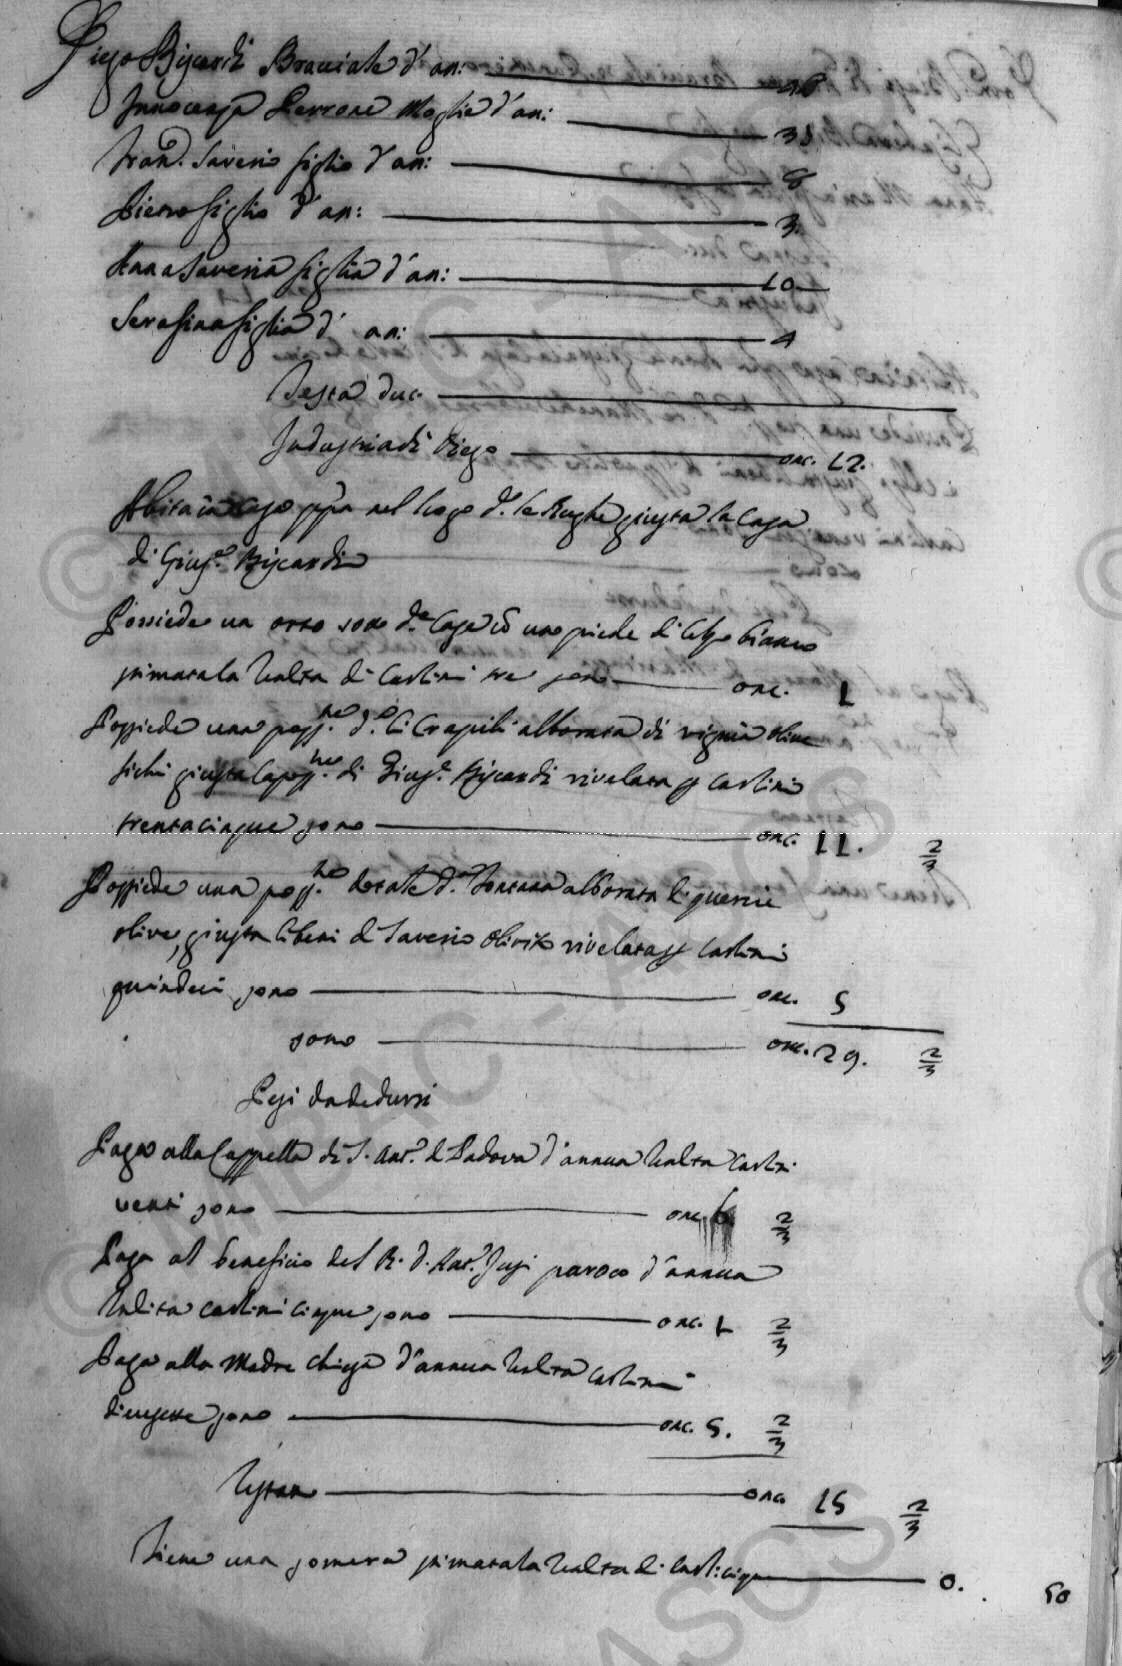 Diego Biscardi Bracciale d'an:
Innocenza Perrone Moglie d'an: 38
Fran.º Saverio figlio d'an: 8
Pietro figlio d'an: 3
Anna Saveria figlia d'an: 10
Serafina figlia d' an: 4
Testa duc.
Industria di Diego onc. 12.
Abita in casa ppa nel luogo d.º le Rughe giusta la casa
di Gius.e Biscardi
Possiede un orto sotto d.a casa cõ uno piede di celso bianco
stimata la rendita di carlini tre sono onc. 1
Possiede una poss.ne d.a alborata di vigna olive
fichi giusta la poss.ne di Gius.e Biscardi rivelata p carlini
trentacinque sono onc. 11. 2/3
Possiede una poss.ne dotale d.a Fontana alborata di querci
olive, giusta li beni di Saverio rivelata p carlini
quindeci sono onc. 5
sono onc. 29. 2/3
Pesi da dedursi
Paga alla Cappella di S. Ant.º di Padova d'annua rendita carlini
venti sono onc. 6 2/3
Paga al beneficio del R. d. Ant.º paroco d'annua
rendita carlini cinque sono onc. 1 2/3
Paga alla Madre chiesa d'annua rendita carlini
dicessette sono onc. 5. 2/3
Restano onc. 15 2/3
Tiene una somera stimata la rendita di carli: cinque 0. 50